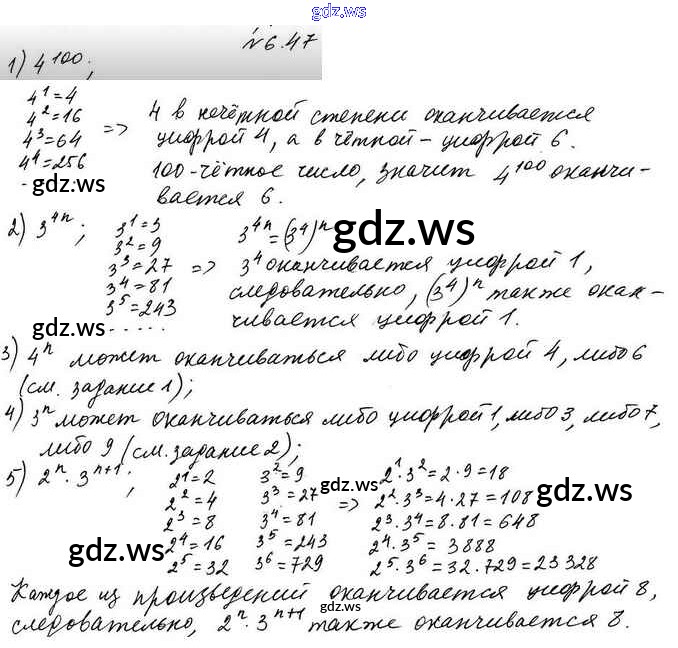 gdz.ws
№6.47
1) 4^100;
4^1=4
4^2=16
4^3=64
4^4=256
=> 4 в нечётной степени оканчивается
цифрой 4, а в чётной – цифрой 6.
100-чётное число, значит 4^100 оканчи-
вается 6.
gdz.ws
2) 3^4n;
3^1=3
3^2=9
3^3=27
3^4=81
3^5=243
.....
3^4n=(3^4)^n
gdz.ws
=> 3^4 оканчивается цифрой 1,
следовательно, (3^4)^n также окан-
чивается цифрой 1.
gdz.ws
3) 4^n может оканчиваться либо цифрой 4, либо 6
(см. задание 1);
4) 3^n может оканчиваться либо цифрой 1, либо 3, либо 7,
либо 9 (см. задание 2);
5) 2^n · 3^n+1;
2^1=2
2^2=4
2^3=8
2^4=16
2^5=32
3^2=9
3^3=27
3^4=81
3^5=243
3^6=729
=>
2^1·3^2=2·9=18
2^2·3^3=4·27=108
2^3·3^4=8·81=648
2^4·3^5=3888
2^5·3^6=32·729=23328
gdz.ws
gdz.ws
gdz.ws
Каждое из произведений оканчивается цифрой 8,
gdz.ws
следовательно, 2^n·3^n+1 также оканчивается 8.